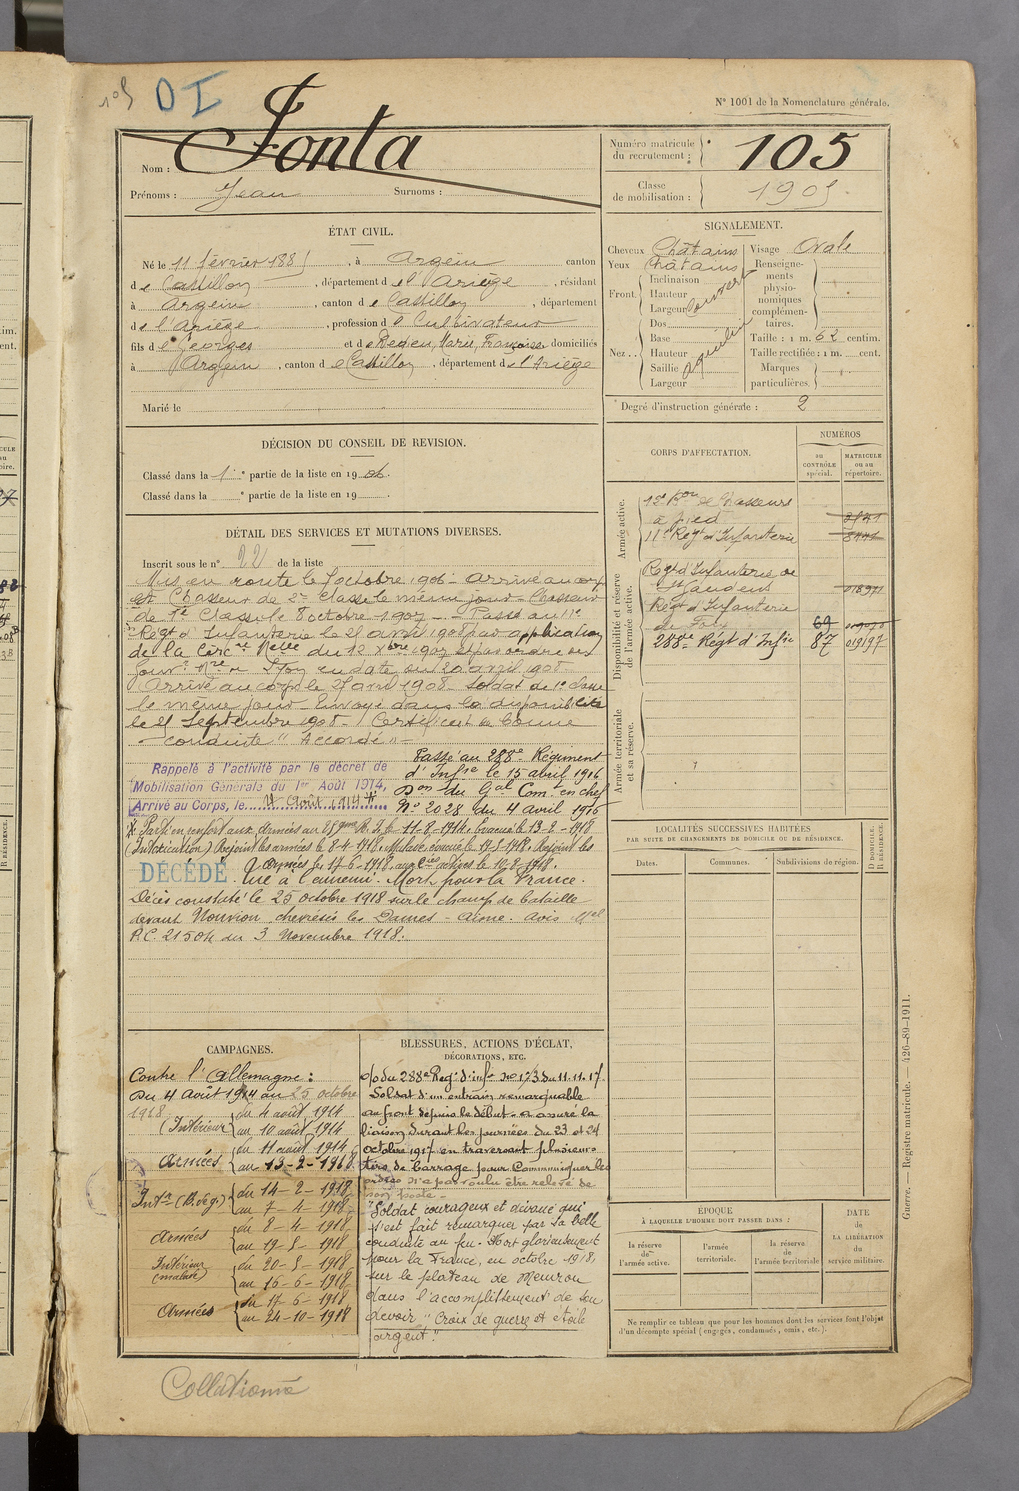 105 DI
N° 1001 de la Nomenclature générale.
Nom : Fonta
Prénoms : Jean Surnoms :
Numéro matricule du recrutement : 105
Classe de mobilisation : 1905
ÉTAT CIVIL.
Né le 11 février 1885, à Argein canton
de Castillon, département de l'Ariège, résidant
à Argein, canton de Castillon, département
de l'Ariège, profession de Cultivateur
fils de Georges et de Marie, Françoise domiciliés
à Argein, canton de Castillon, département de l'Ariège
Marié le
SIGNALEMENT.
Cheveux Châtains Visage Ovale
Yeux Châtains
Front. Inclinaison Hauteur Largeur couvert
Nez . . Dos Base Hauteur Saillie Largeur aquilin
Renseignements physionomiques complémentaires.
Taille : 1 m. 62 centim.
Taille rectifiée : 1 m. cent.
Marques particulières.
Degré d'instruction générale : 2
DÉCISION DU CONSEIL DE REVISION.
Classé dans la 1e partie de la liste en 1906.
Classé dans la e partie de la liste en 19 .
DÉTAIL DES SERVICES ET MUTATIONS DIVERSES.
Inscrit sous le n° 22 de la liste
Mis en route le octobre 1906 - Arrivé au corps
et Chasseur de 2e classe le même jour - Chasseur
de 1e Classe le 8 octobre 1907 - Passé au 11e
Régt d'Infanterie le 21 avril 1908 par application
de la Circre Melle du 12 Xbre 1907 et par ordre du
Gouvr Mre de Lyon en date du 20 avril 1908
Arrivé au corps le avril 1908 Soldat de 1e classe
le même jour - Envoyé dans la disponibilité
le 21 Septembre 1908 - Certificat de bonne
conduite "Accordé" -
Rappelé à l'activité par le décret de
Mobilisation Générale du 1er Août 1914,
Arrivé au Corps, le 4 Août 1914
Passé au 288e Régiment
d'Infie le 15 avril 1916
Don du Gal Comt en chef
N° 2028 du 4 avril 1916
Parti en renfort aux Armées au R.I. le 11-8-1914. Evacué le 13-2-1918
(Intoxication) Rejoint les armées le 8-4-1918. Malade, évacué le 19-5-1918. Rejoint les
Armées le 17-6-1918.
DÉCÉDÉ. Tué à l'ennemi. Mort pour la France.
Décès constaté le 25 octobre 1918 sur le champ de bataille
devant Nouvion, les Dames - Aisne. Avis Mel
P.C. 21504 du 3 Novembre 1918.
CORPS D'AFFECTATION.
NUMÉROS
au CONTRÔLE spécial.
MATRICULE ou au répertoire.
Armée active.
12e Bon de Chasseurs
à pied
11e Régt d'Infanterie
Disponibilité et réserve de l'armée active.
Régt d'Infanterie de
St Gaudens
Régt d'Infanterie
de Foix 69
288e Régt d'Infie 87 019197
Armée territoriale et sa réserve.
LOCALITÉS SUCCESSIVES HABITÉES
PAR SUITE DE CHANGEMENTS DE DOMICILE OU DE RÉSIDENCE.
Dates. Communes. Subdivisions de région.
D DOMICILE. R RÉSIDENCE.
CAMPAGNES.
Contre l'Allemagne :
Du 4 Août 1914 au 25 octobre
1918
Intérieur du 4 août 1914
au 10 août 1914
Armées du 11 août 1914
au 13-2-1918
Intr (B. de g.) du 14-2-1918
au 7-4-1918
Armées du 8-4-1918
au 19-5-1918
Intérieur (malade) du 20-5-1918
au 16-6-1918
Armées du 17-6-1918
au 24-10-1918
BLESSURES, ACTIONS D'ÉCLAT,
DÉCORATIONS, ETC.
o/o du 288e Regt d'infie no 173 du 11.11.17
Soldat d'un entrain remarquable
au front depuis le début - a assuré la
liaison durant les journées du 23 et 24
octobre 1917 en traversant plusieurs
tirs de barrage pour Communiquer les
ordres n'a pas voulu être relevé de
son poste -
"Soldat courageux et dévoué qui
s'est fait remarquer par sa belle
conduite au feu. Mort glorieusement
pour la France, en octobre 1918,
sur le plateau de
dans l'accomplissement de son
devoir" Croix de guerre et étoile
argent."
ÉPOQUE
À LAQUELLE L'HOMME DOIT PASSER DANS :
la réserve de l'armée active.
l'armée territoriale.
la réserve de l'armée territoriale
DATE de LA LIBÉRATION du service militaire.
Ne remplir ce tableau que pour les hommes dont les services font l'objet
d'un décompte spécial (engagés, condamnés, omis, etc.).
Guerre. — Registre matricule. — 426-89-1911.
Collationné